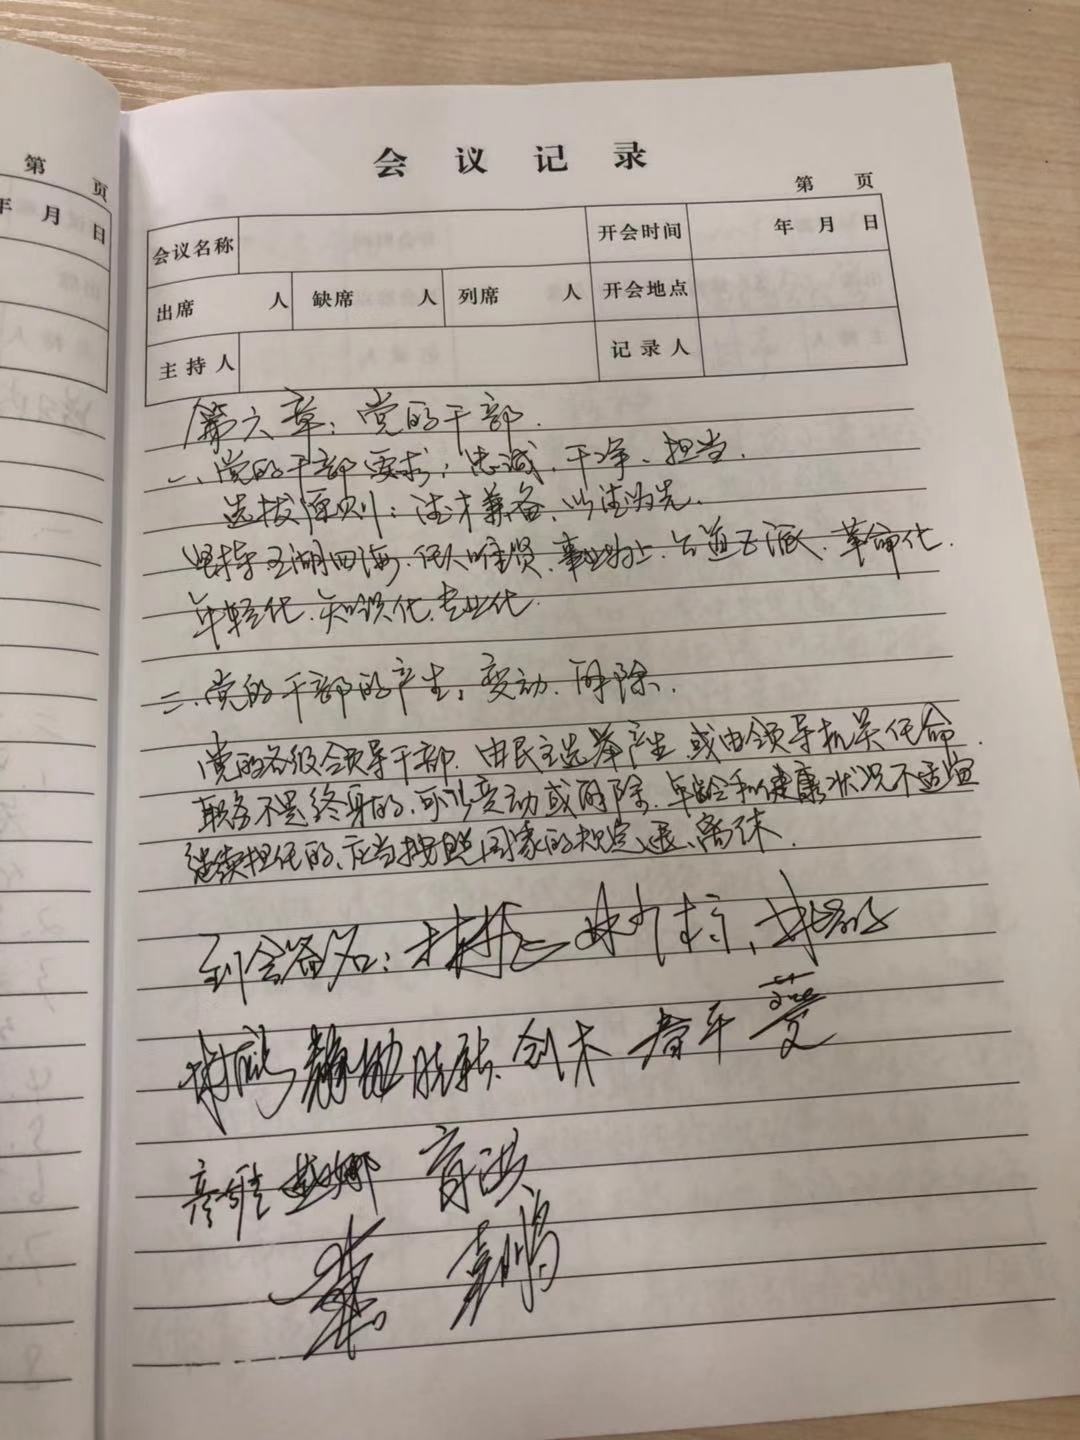 第 页
年 月 日
会议记录
第 页
会议名称 开会时间 年 月 日
出席 人 缺席 人 列席 人 开会地点
主持人 记录人
第六章：党的干部.
一、党的干部要求：忠诚、干净、担当.
选拔原则：德才兼备、以德为先.
坚持五湖四海、任人唯贤、事业为上、公道正派、革命化.
年轻化.知识化.专业化.
二、党的干部的产生，变动、解除.
党的各级领导干部.由民主选举产生.或由领导机关任命.
职务不是终身的、可以变动或解除.年龄和健康状况不适宜
继续担任的、应当按照国家的规定退、离休.
到会签名：
创木 春平
彦雅 育洪